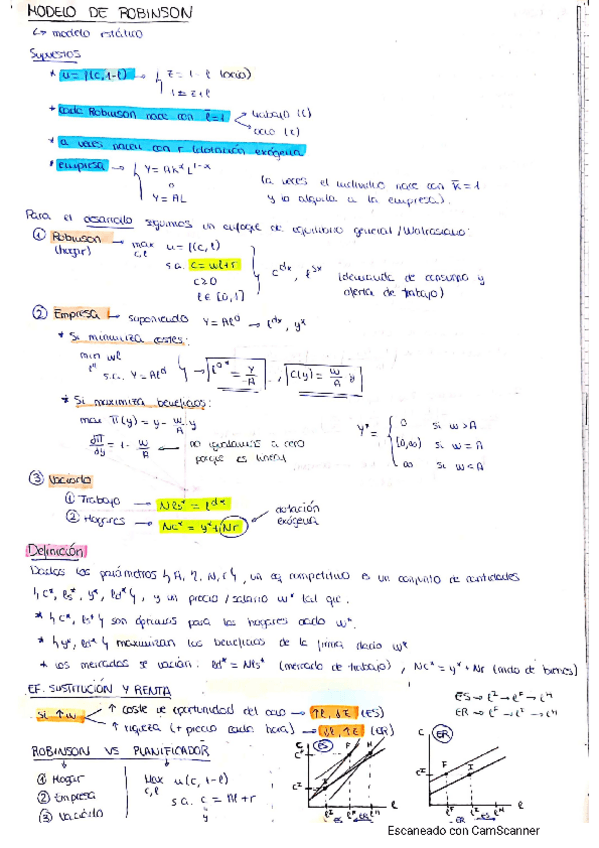 MODELO DE ROBINSON
↳ modelo estático
Supuestos
* u = f(c, 1-l) → { z = 1 - l (ocio)
1 = z + l
* cada Robinson nace con l̄ = 1 → trabajo (l)
→ ocio (z)
* a veces nacen con r (dotación exógena)
* empresa → { Y = AK^α L^1-α
o
Y = AL
(a veces el individuo nace con K̄ = 1
y lo alquila a la empresa).
Para el desarrollo seguimos un enfoque de equilibrio general / Walrasiano:
① Robinson → max u = f(c, l)
(hogar) c, l
s.a. c = wl + r
c ≥ 0
l ∈ [0, 1]
c^d*, l^s* (demanda de consumo y
oferta de trabajo)
② Empresa → suponiendo Y = Al^d → l^d*, y*
* Si minimiza costes:
min wl
s.a. Y = Al^d → l^d* = Y/A , C(y) = w/A y
* Si maximiza beneficios:
max Π(y) = y - w/A y
dΠ/dy = 1 - w/A ← no igualamos a cero
porque es lineal
Y* = { 0 si w > A
[0, ∞) si w = A
∞ si w < A
③ Vaciado
① Trabajo → Nl^s* = l^d*
② Hogares → Nc* = y* + Nr dotación
exógena
Definición
Dados los parámetros { A, N, r }, un eq competitivo es un conjunto de cantidades
{ c*, ls*, y*, ld* }, y un precio / salario w* tal que:
* { c*, ls* } son óptimos para los hogares dado w*.
* { y*, ld* } maximizan los beneficios de la firma dado w*
* los mercados se vacían: ld* = Nls* (mercado de trabajo), Nc* = y* + Nr (mdo de bienes)
EF. SUSTITUCIÓN Y RENTA
Si ↑w → ↑ coste de oportunidad del ocio → ↑l, ↓z (ES)
→ ↑ riqueza (+ precio cada hora) → ↓l, ↑z (ER)
ES → l^I → l^F
ER → l^F → l^H
ROBINSON VS PLANIFICADOR
① Hogar
② Empresa
③ Vaciado
Max u(c, 1-l)
c, l
s.a. c = Al + r
y
c
ES
F
H
l
ES
ER
c
ER
F
I
l
ER
Escaneado con CamScanner